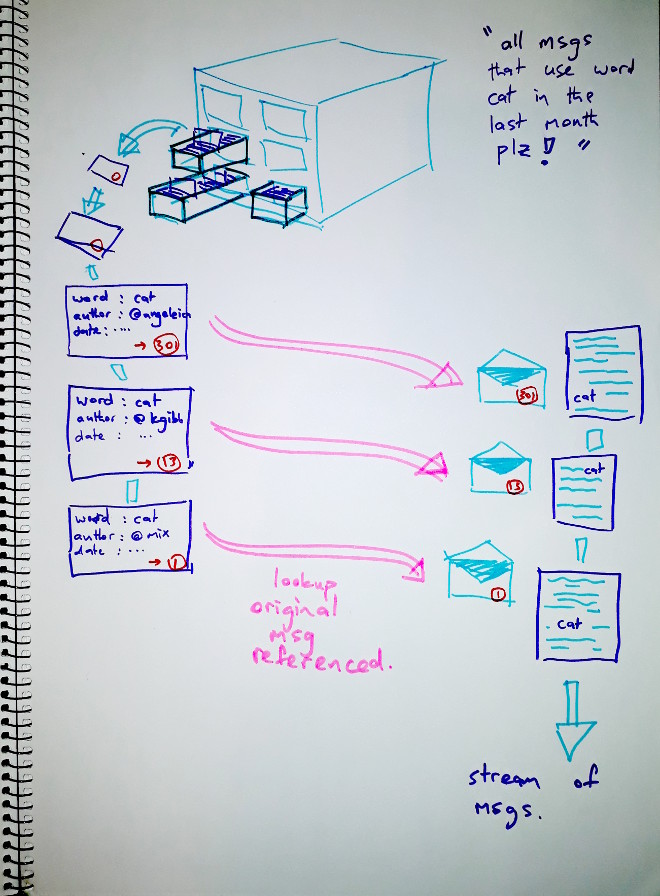 "all msgs
that use word
cat in the
last month
plz! "
word : cat
author : @angeleia
date : ....
→ 301
word : cat
author : @kgibb
date : ...
→ 13
word : cat
author : @mix
date : ...
→ 1
lookup
original
msg
referenced.
301
cat
13
cat
1
cat
stream of
msgs.